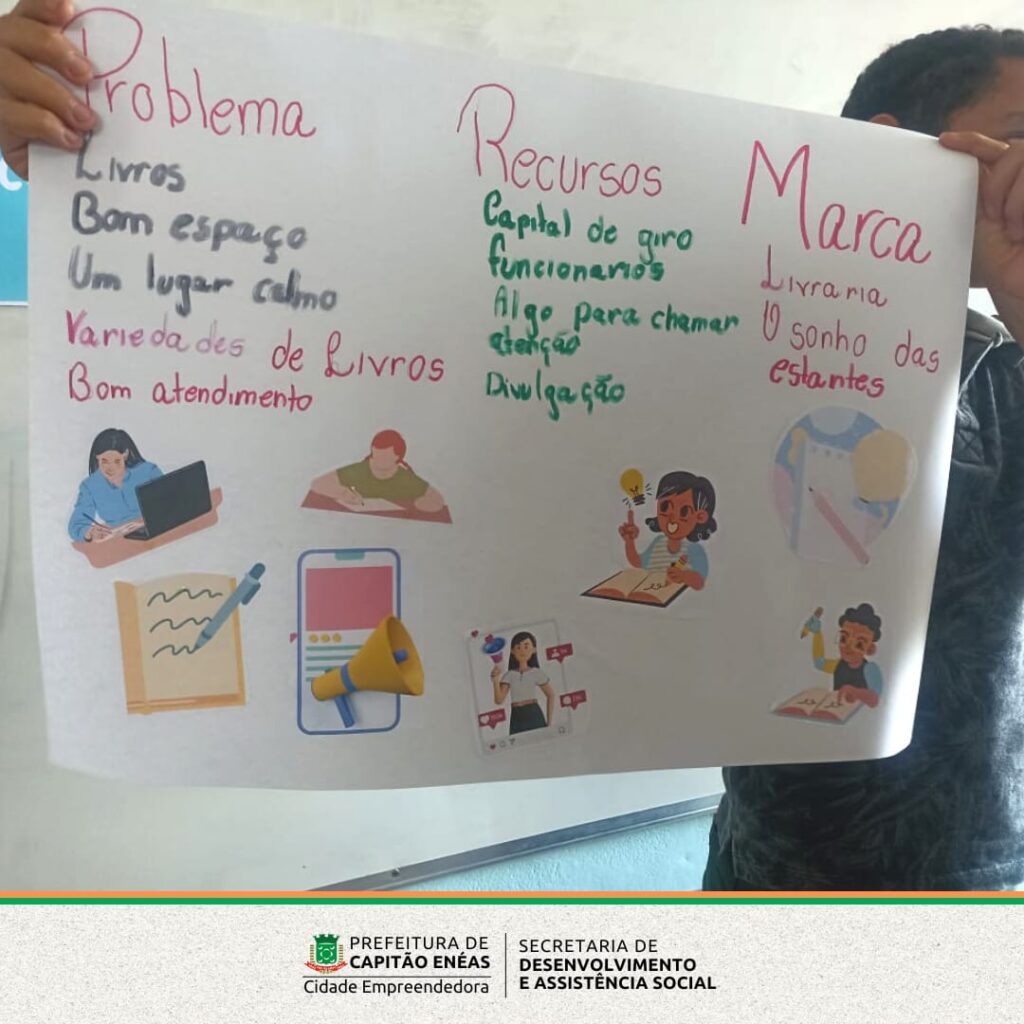 Problema
Livros
Bom espaço
Um lugar calmo
Variedades de Livros
Bom atendimento
Recursos
Capital de giro
funcionarios
Algo para chamar
atenção
Divulgação
Marca
Livraria
O sonho das
estantes
PREFEITURA DE
CAPITÃO ENÉAS
Cidade Empreendedora
SECRETARIA DE
DESENVOLVIMENTO
E ASSISTÊNCIA SOCIAL